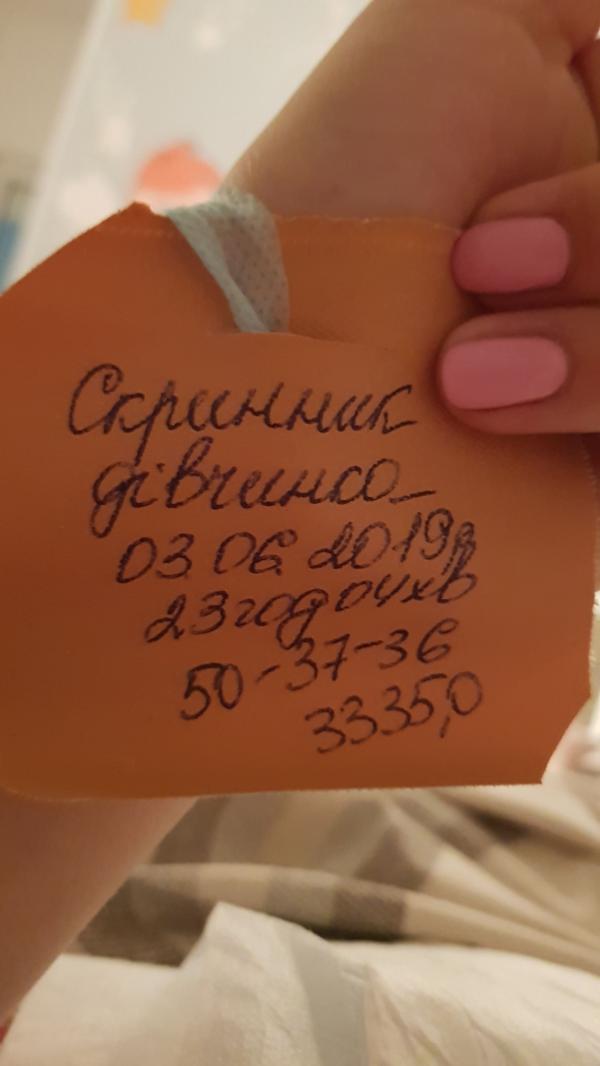 Скринник
дівчинка
03.06.2019р
23 год 04 хв
50-37-36
3335,0